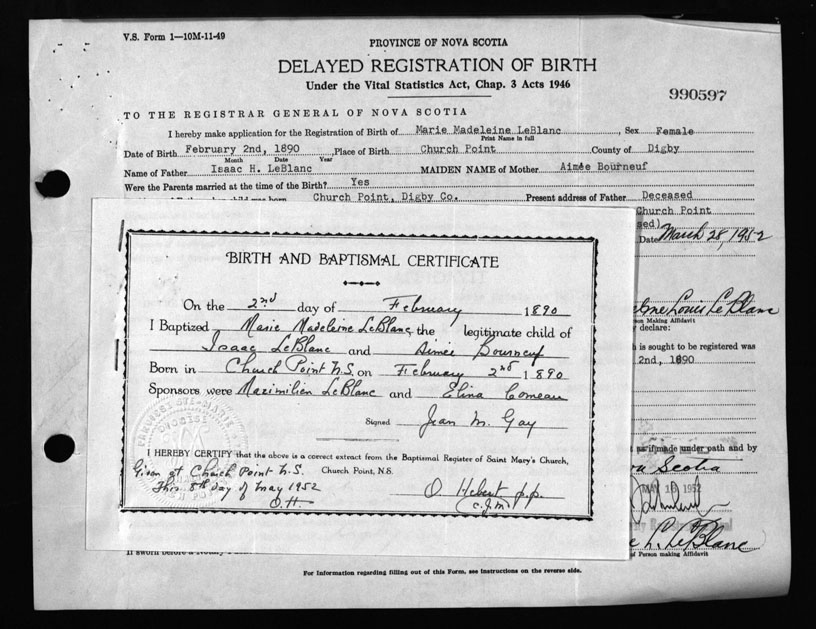 V.S. Form 1—10M-11-49
PROVINCE OF NOVA SCOTIA
DELAYED REGISTRATION OF BIRTH
Under the Vital Statistics Act, Chap. 3 Acts 1946
990597
TO THE REGISTRAR GENERAL OF NOVA SCOTIA
I hereby make application for the Registration of Birth of Marie Madeleine LeBlanc, Sex Female
Print Name in full
Date of Birth February 2nd, 1890, Place of Birth Church Point County of Digby
Month Date Year
Name of Father Isaac H. LeBlanc MAIDEN NAME of Mother Aimée Bourneuf
Were the Parents married at the time of the Birth? Yes
Church Point, Digby Co. Present address of Father Deceased
Church Point
sed)
Date March 28, 1952
BIRTH AND BAPTISMAL CERTIFICATE
On the 2nd day of February 1890
I Baptized Marie Madeleine LeBlanc the legitimate child of
Isaac LeBlanc and Aimée Bourneuf
Born in Church Point N.S. on February 2nd 1890
Sponsors were Maximilien LeBlanc and Elina Comeau
Signed Jean M. Gay
I HEREBY CERTIFY that the above is a correct extract from the Baptismal Register of Saint Mary's Church,
Church Point, N.S.
Given at Church Point N.S.
This 8th day of May 1952
O.H.
O. Hebert p.p.
(c.j.m.)
Louis LeBlanc
son Making Affidavit
declare:
is sought to be registered was
2nd, 1890
as if made under oath and by
Scotia
MAY 1952
e L. LeBlanc
of Person making Affidavit
If sworn before a Notary
For Information regarding filling out of this Form, see Instructions on the reverse side.